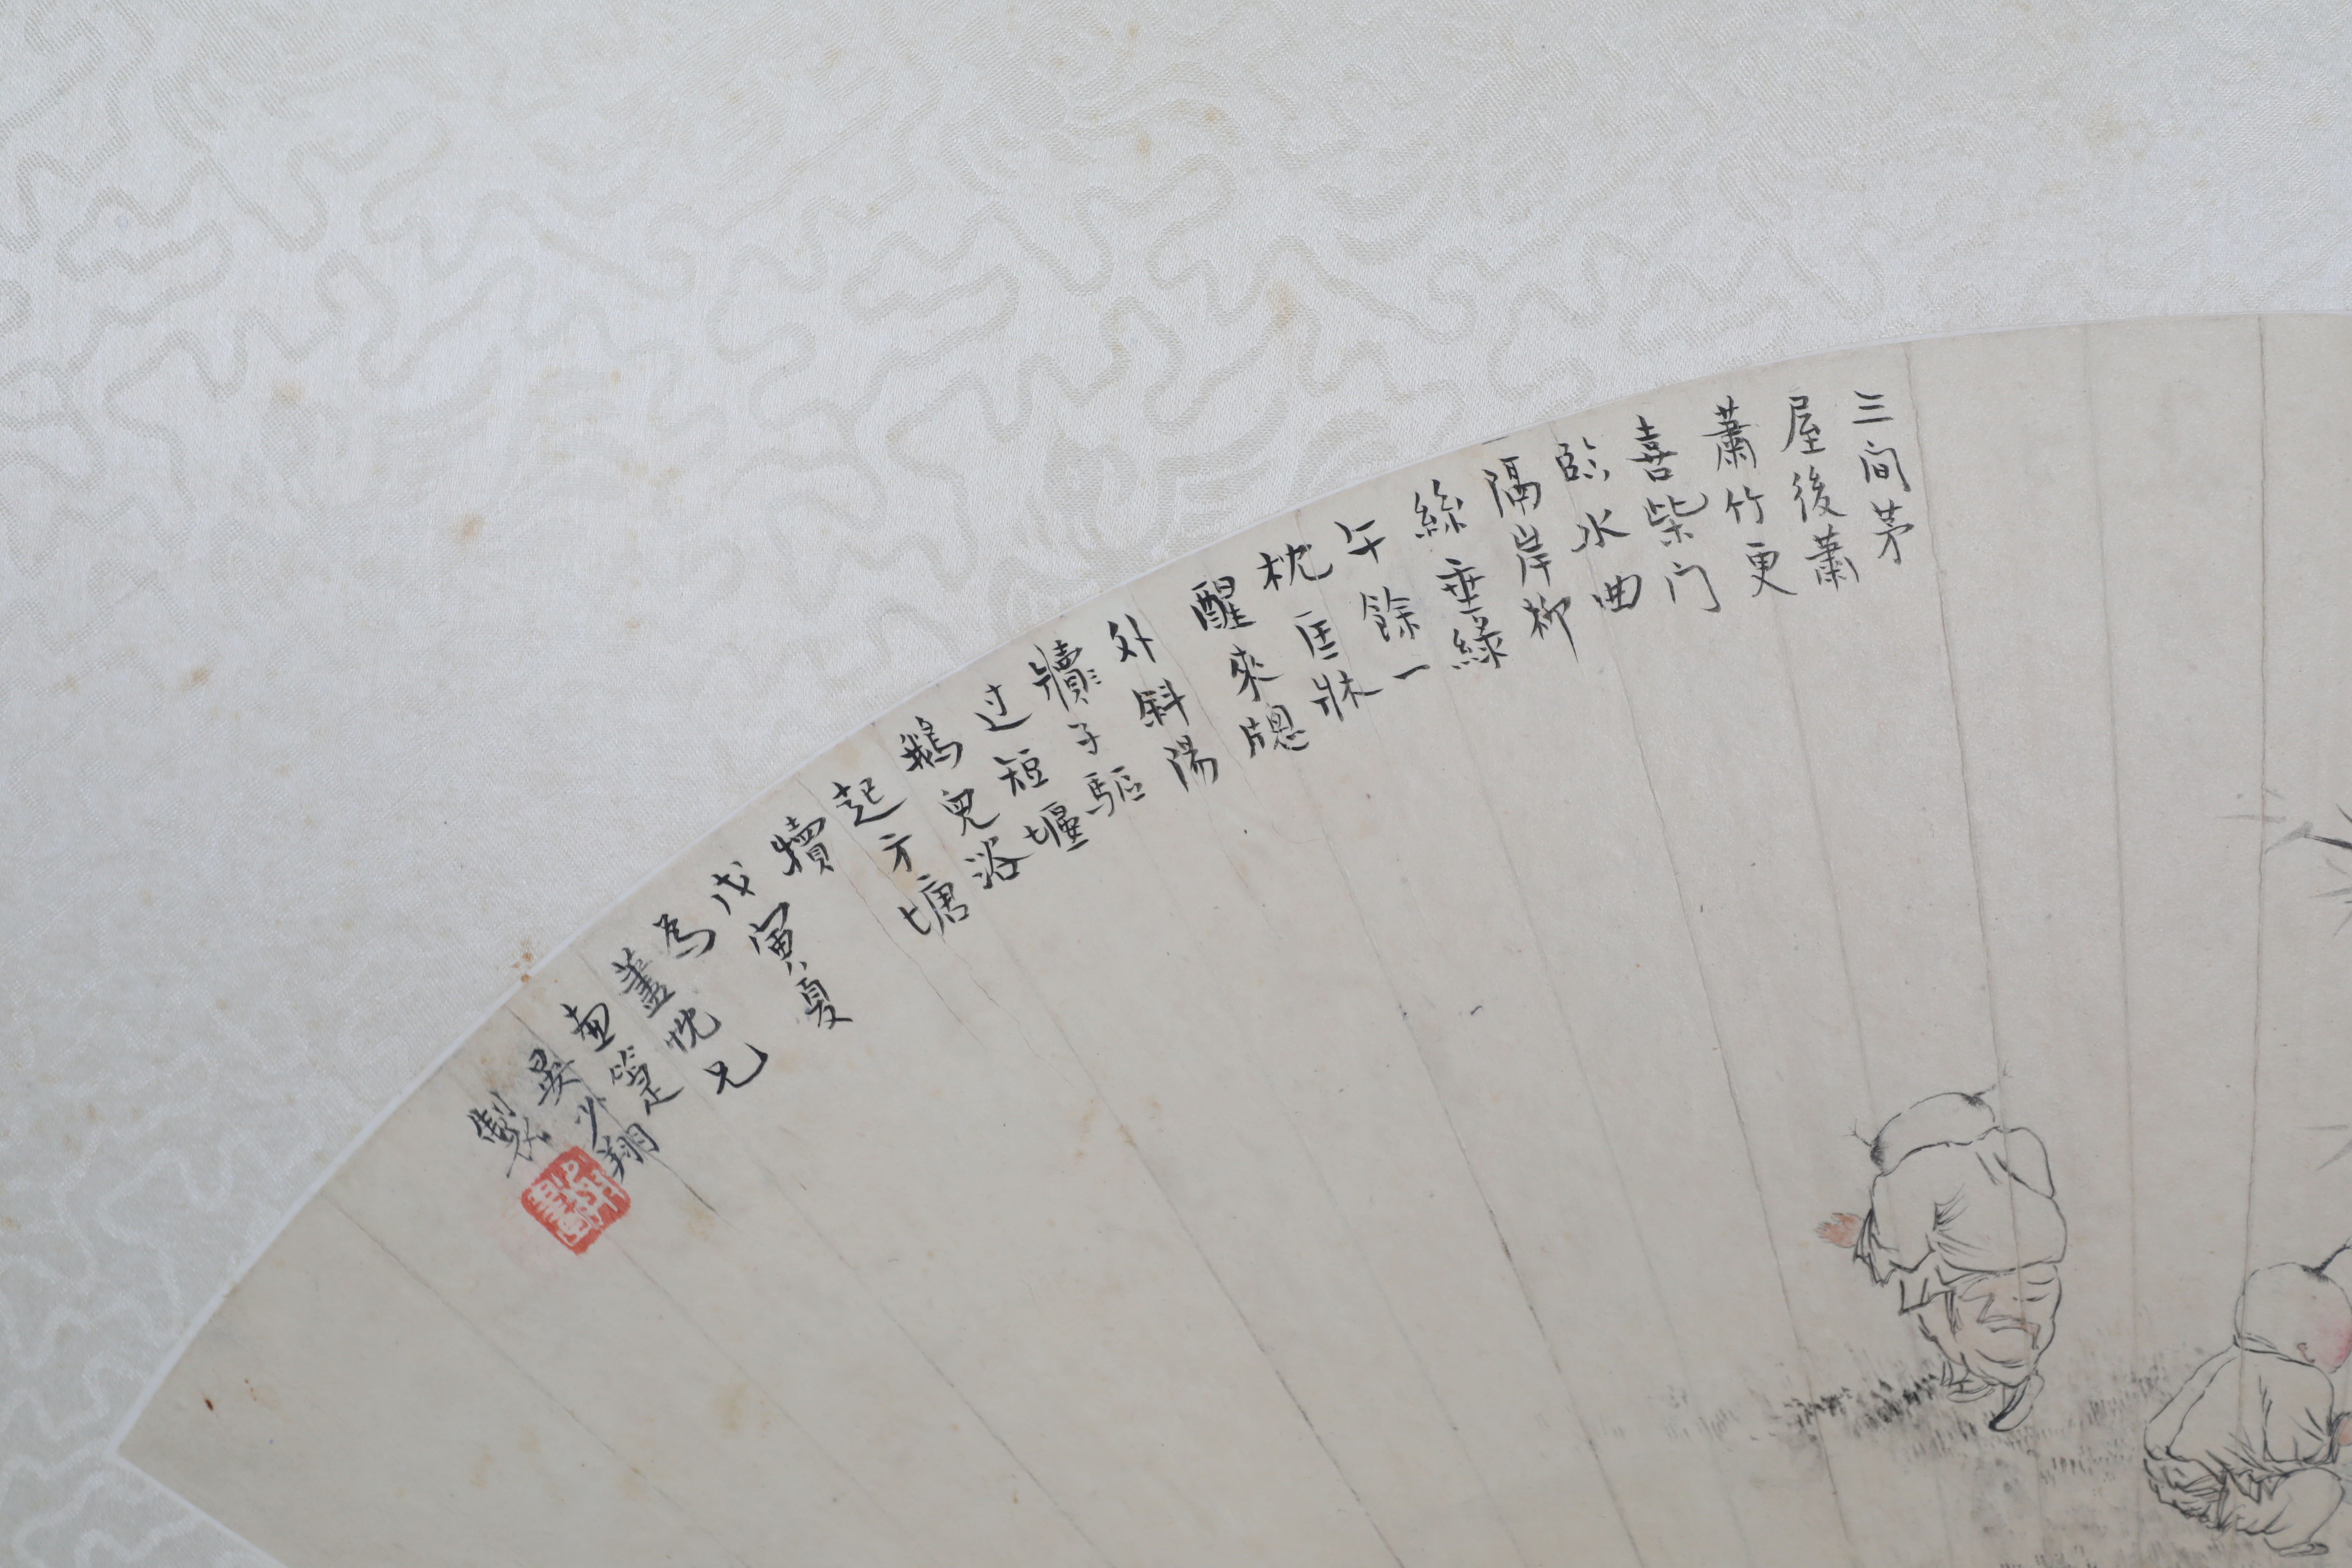 三间茅
屋後蕭
蕭竹更
喜柴门
臨水曲
隔岸柳
絲垂綠
午餘一
枕匡牀
醒來牕
外斜陽
牘子驅
过短堰
鵝兒浴
起方塘
犢
戊寅夏
為
藎忱兄
画箑
吴少翔
製